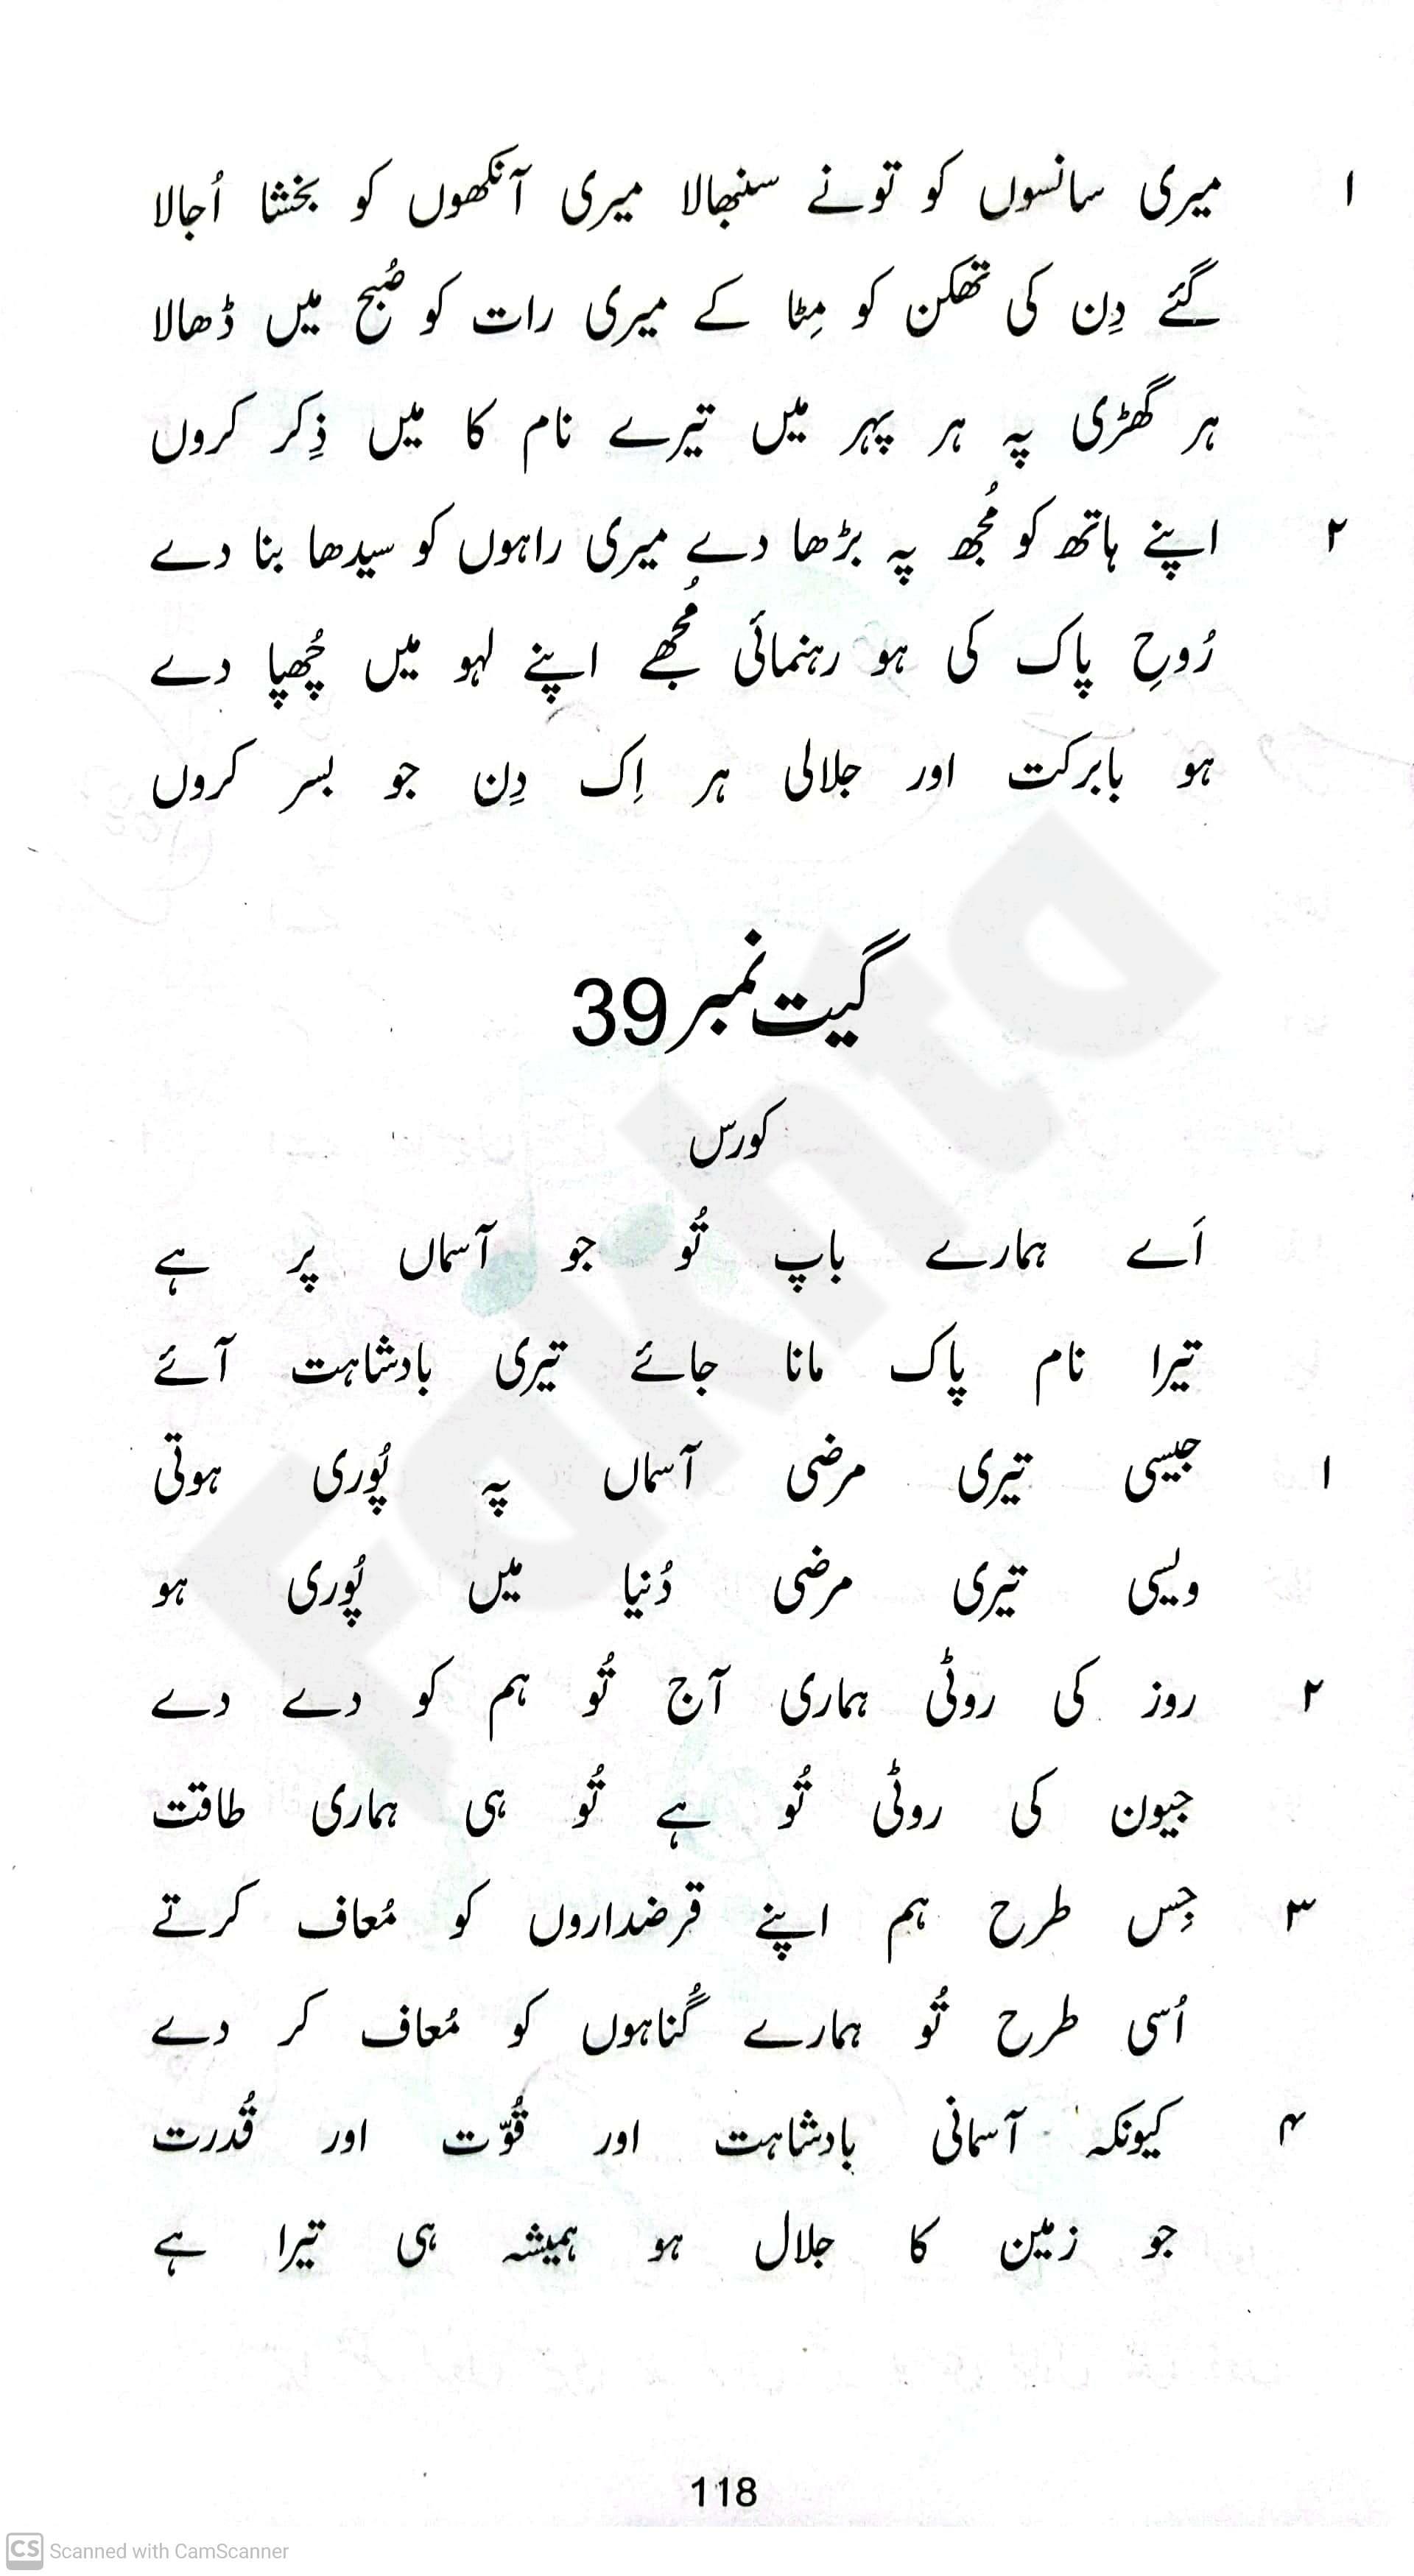 ۱ میری سانسوں کو تو نے سنبھالا میری آنکھوں کو بخشا اُجالا
گئے دِن کی تھکن کو مِٹا کے میری رات کو صُبح میں ڈھالا
ہر گھڑی پہ ہر پہر میں تیرے نام کا میں ذِکر کروں
۲ اپنے ہاتھ کو مُجھ پہ بڑھا دے میری راہوں کو سیدھا بنا دے
رُوحِ پاک کی ہو رہنمائی مُجھے اپنے لہو میں چُھپا دے
ہو بابرکت اور جلالی ہر اِک دِن جو بسر کروں
گیت نمبر 39
کورس
اَے ہمارے باپ تُو جو آسماں پر ہے
تیرا نام پاک مانا جائے تیری بادشاہت آئے
۱ جیسی تیری مرضی آسماں پہ پُوری ہوتی
ویسی تیری مرضی دُنیا میں پُوری ہو
۲ روز کی روٹی ہماری آج تُو ہم کو دے دے
جیون کی روٹی تُو ہے تُو ہی ہماری طاقت
۳ جِس طرح ہم اپنے قرضداروں کو مُعاف کرتے
اُسی طرح تُو ہمارے گُناہوں کو مُعاف کر دے
۴ کیونکہ آسمانی بادشاہت اور قُوّت اور قُدرت
جو زمین کا جلال ہو ہمیشہ ہی تیرا ہے
118
Fakhta
CS Scanned with CamScanner